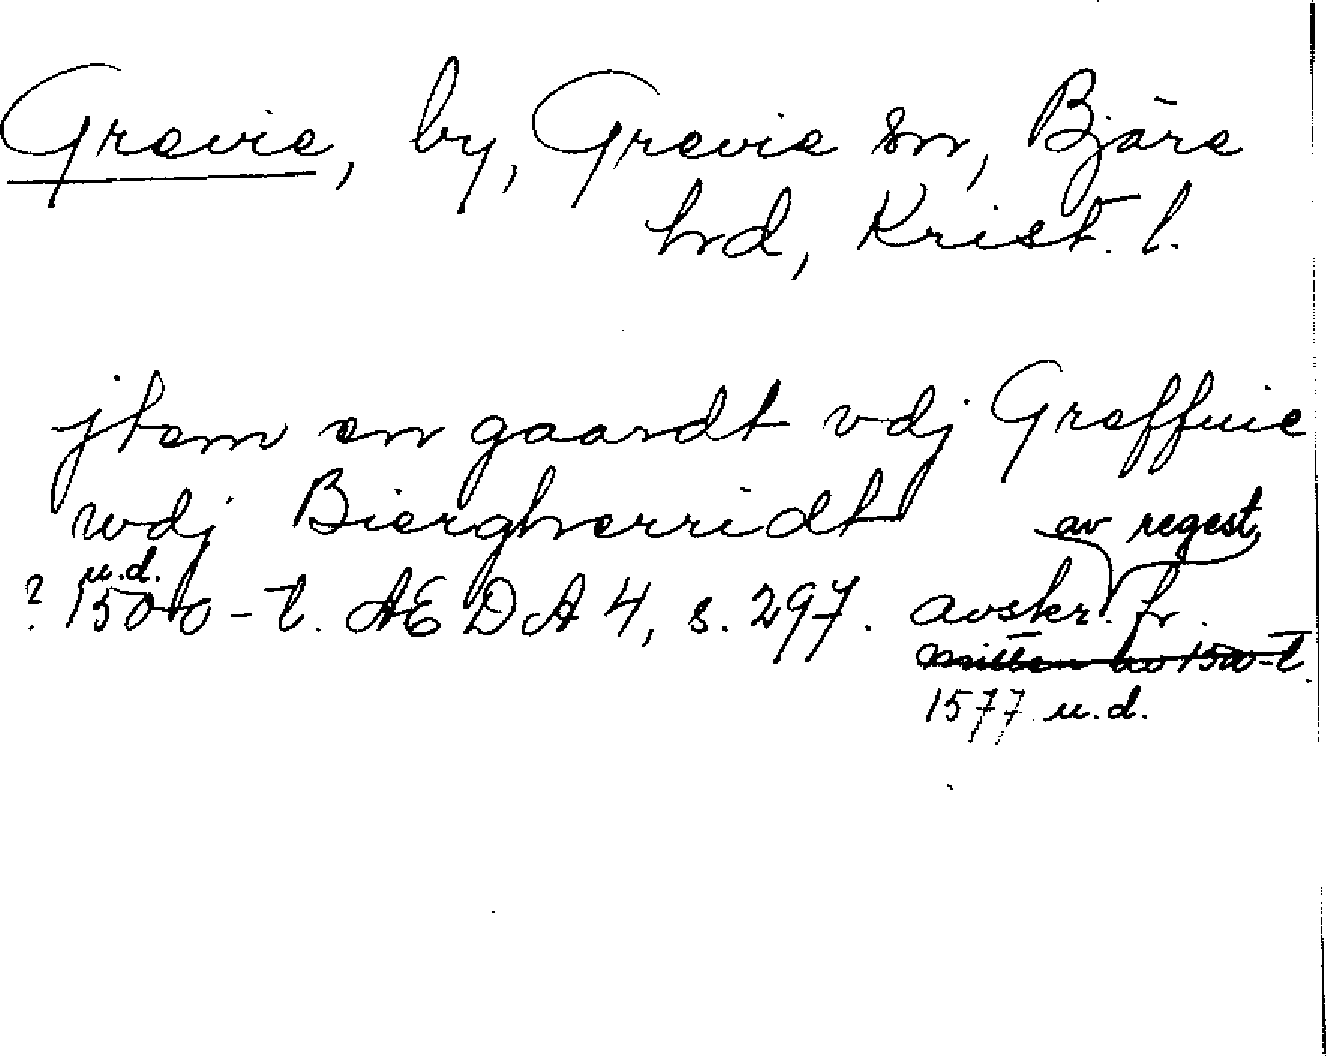 Grevie, by, Grevie sn, Bjäre
hd, Krist. l.
jtem en gaardt vdj Greffuie
wdj Biergherridt
av regest
u.d.
? 1500-t. AEDA 4, s. 297. avskr. fr.
mitten av 1500-t.
1577 u.d.